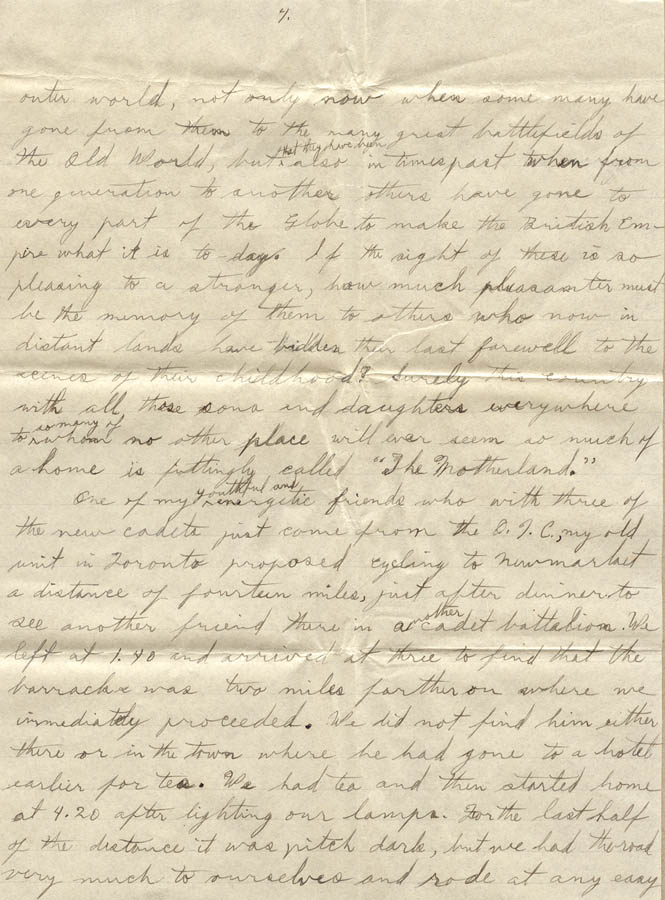 7.
outer world, not only now when some many have
gone from them to the many great battlefields of
that they have been
the Old World, but also in times past when from
one generation to another others have gone to
every part of the Globe to make the British Em-
pire what it is to-day. If the sight of these is so
pleasing to a stranger, how much pleasanter must
be the memory of them to others who now in
distant lands have bidden their last farewell to the
scenes of their childhood? Surely this country
with all, those sons and daughters everywhere
so many of
to whom no other place will ever seem so much of
a home is fittingly called "The Motherland."
youthful and
One of my energetic friends who with three of
the new cadets just come from the O.T.C., my old
unit in Toronto proposed cycling to Newmarket
a distance of fourteen miles, just after dinner to
see another friend there in another cadet battalion. We
left at 1.40 and arrived at three to find that the
barracks was two miles farther on where we
immediately proceeded. We did not find him either
there or in the town where he had gone to a hotel
earlier for tea. We had tea and then started home
at 4.20 after lighting our lamps. For the last half
of the distance it was pitch dark, but we had the road
very much to ourselves and rode at any easy